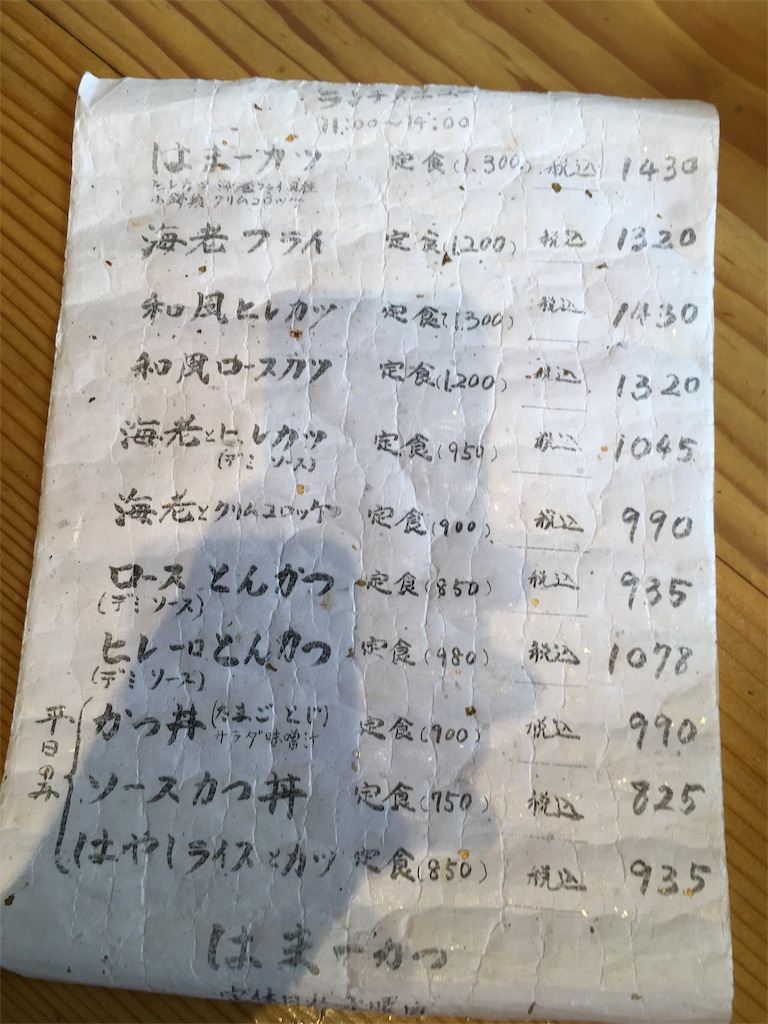 ランチメニュー
11:00〜14:00
はまーカツ 定食(1.300) 税込 1430
ヒレカツ 海老フライ
クリムコロッケ
海老フライ 定食(1.200) 税込 1320
和風ヒレカツ 定食(1.300) 税込 1430
和風ロースカツ 定食(1.200) 税込 1320
海老とヒレカツ 定食(950) 税込 1045
(デミソース)
海老とクリムコロッケ 定食(900) 税込 990
ロースとんかつ 定食(850) 税込 935
(デミソース)
ヒレ一口とんかつ 定食(980) 税込 1078
(デミソース)
平日のみ
かつ丼(たまごとじ) 定食(900) 税込 990
サラダ味噌汁
ソースカつ丼 定食(750) 税込 825
はやしライスとカツ 定食(850) 税込 935
はまーかつ
定休日